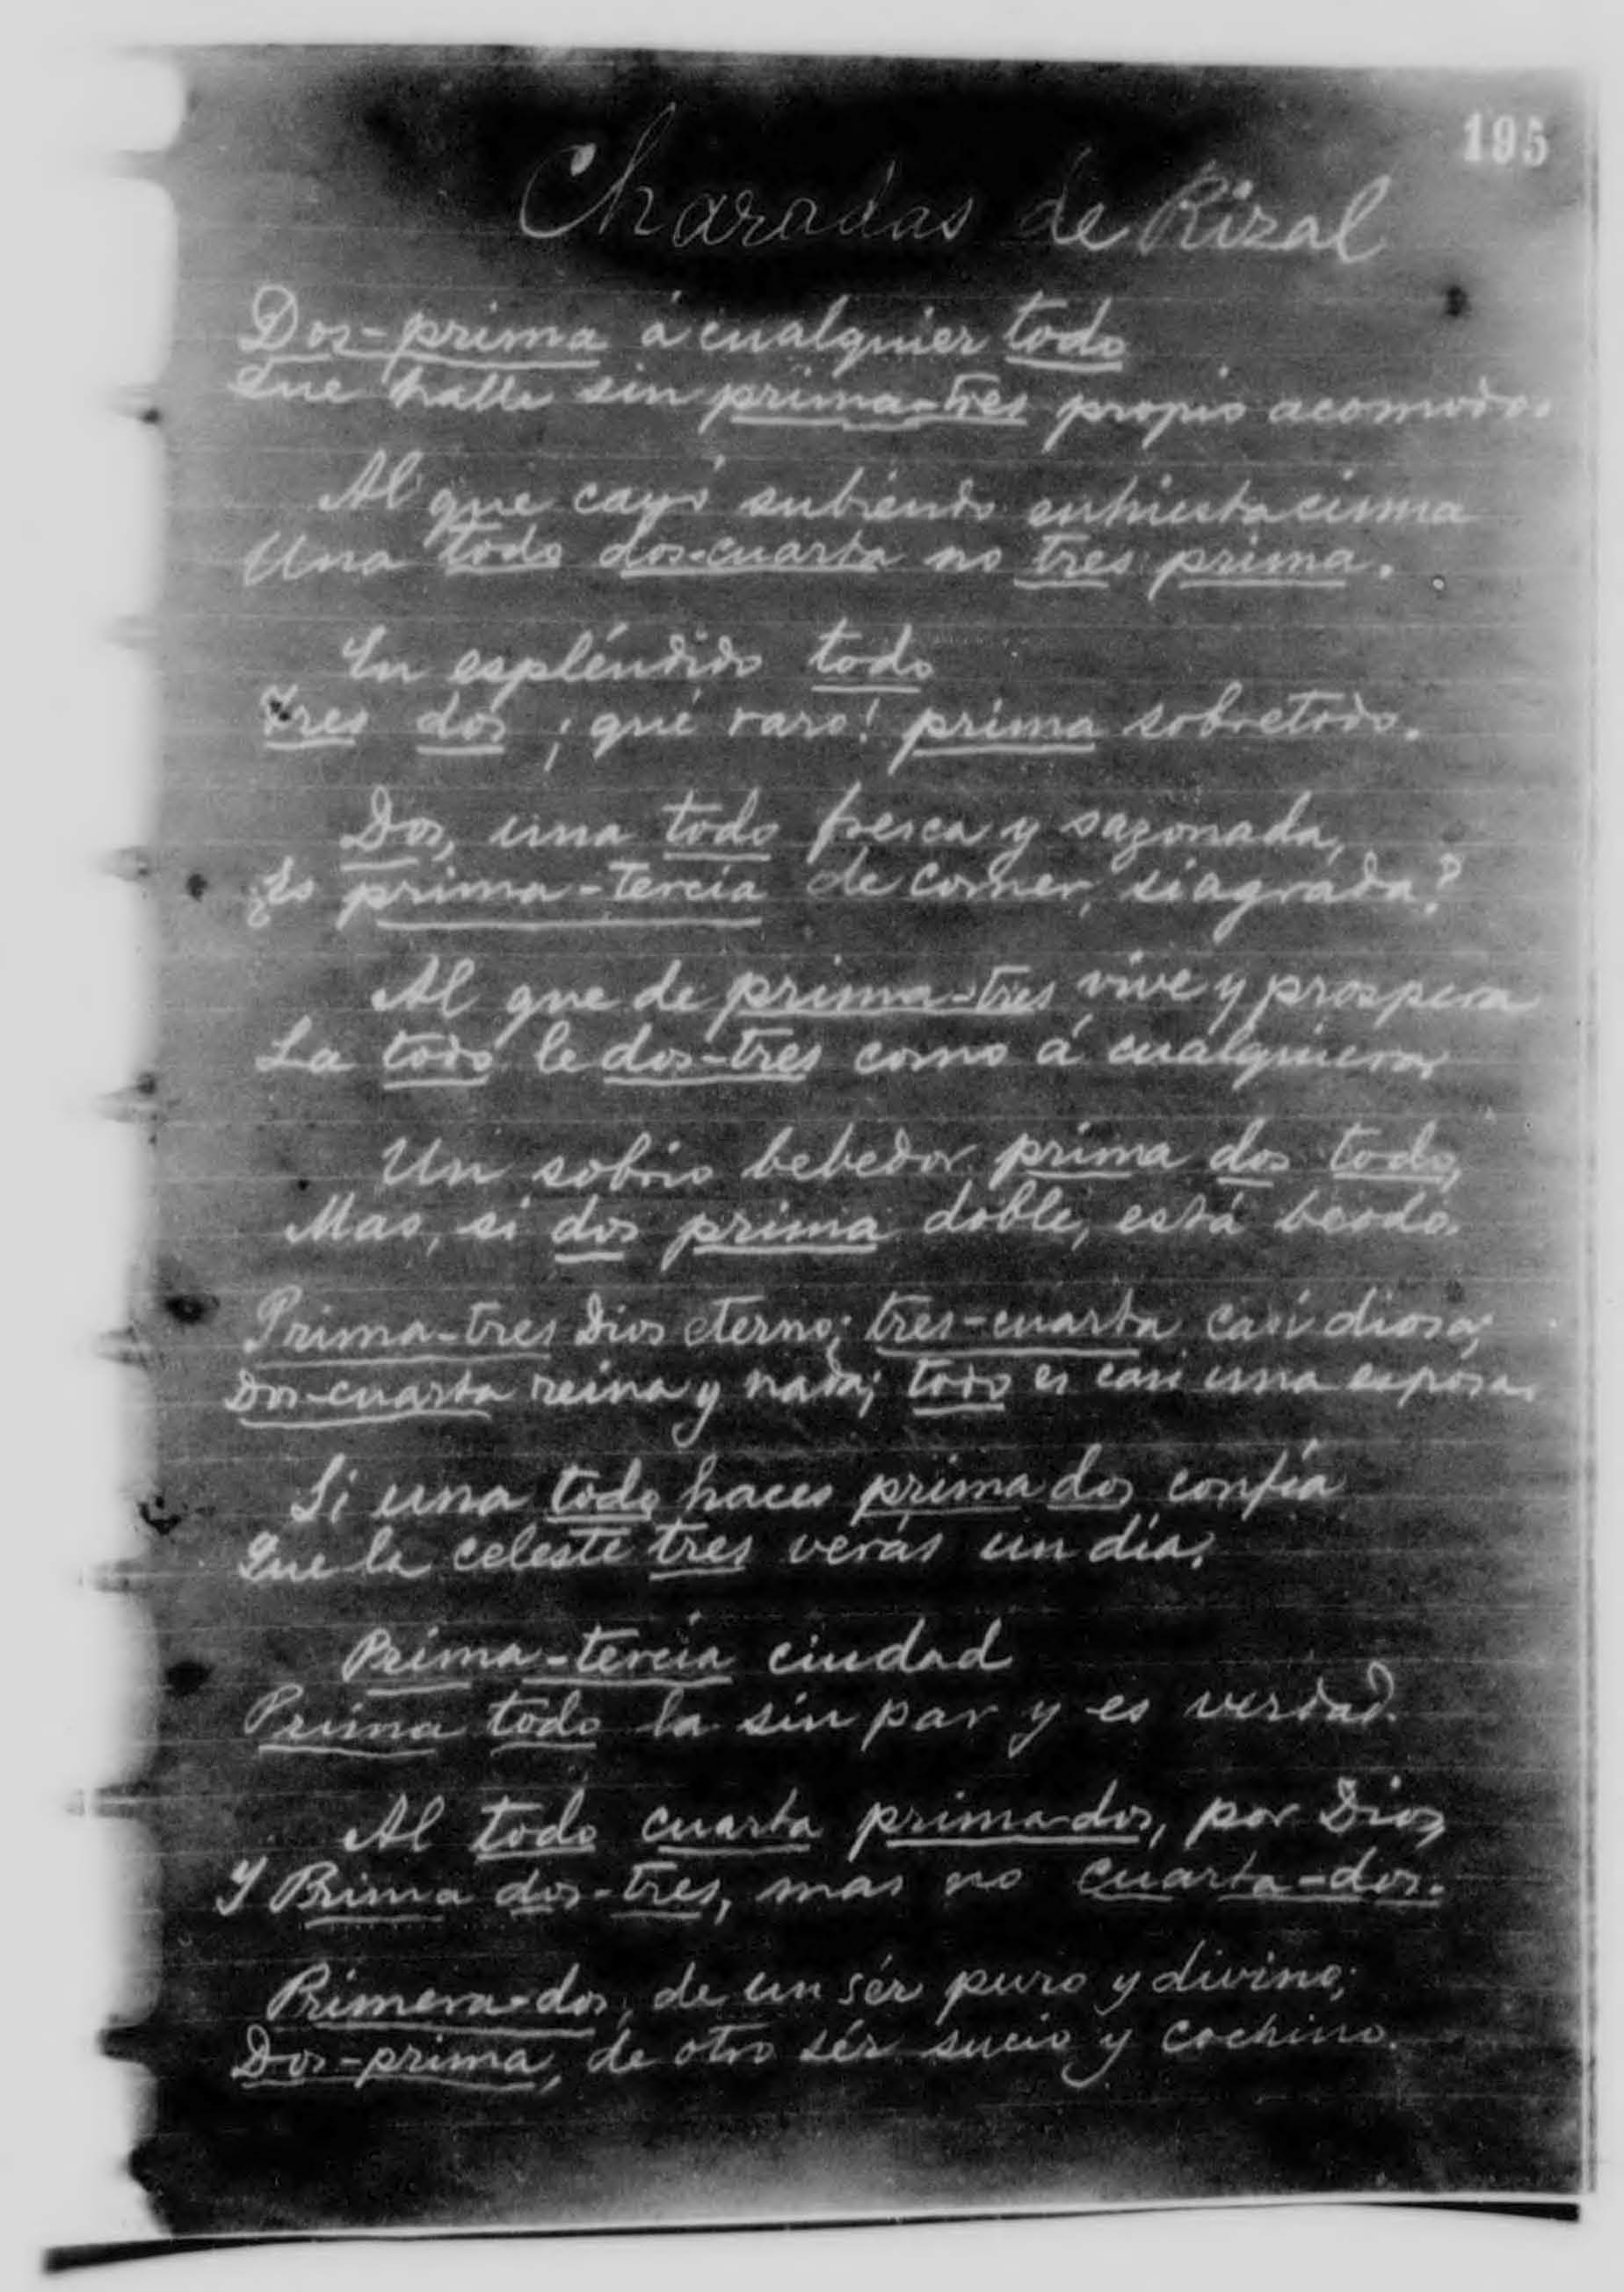 195
Charadas de Rizal
Dos-prima á cualquier todo
Que halle sin prima-tres propio acomodo.
Al que cayó subiendo enhiesta cima
Una todo dos-cuarta no tres prima.
En espléndido todo
Tres dos ¡qué raro! prima sobretodo.
Dos, una todo fresca y sazonada,
¿Es prima-tercia de comer, si agrada?
Al que de prima-tres vive y prospera
La todo le dos-tres como á cualquiera
Un sobrio bebedor prima dos todo,
Mas, si dos prima doble, está beodo.
Prima-tres Dios eterno; tres-cuarta casi diosa;
Dos-cuarta reina y nada; todo es casi una esposa.
Si una todo haces prima dos confía
Que la celeste tres verás un día.
Prima-tercia ciudad
Prima todo la sin par y es verdad.
Al todo cuarta prima-dos, por Dios,
Y Prima dos-tres, mas no cuarta-dos.
Primera-dos, de un sér puro y divino;
Dos-prima, de otro sér sucio y cochino.